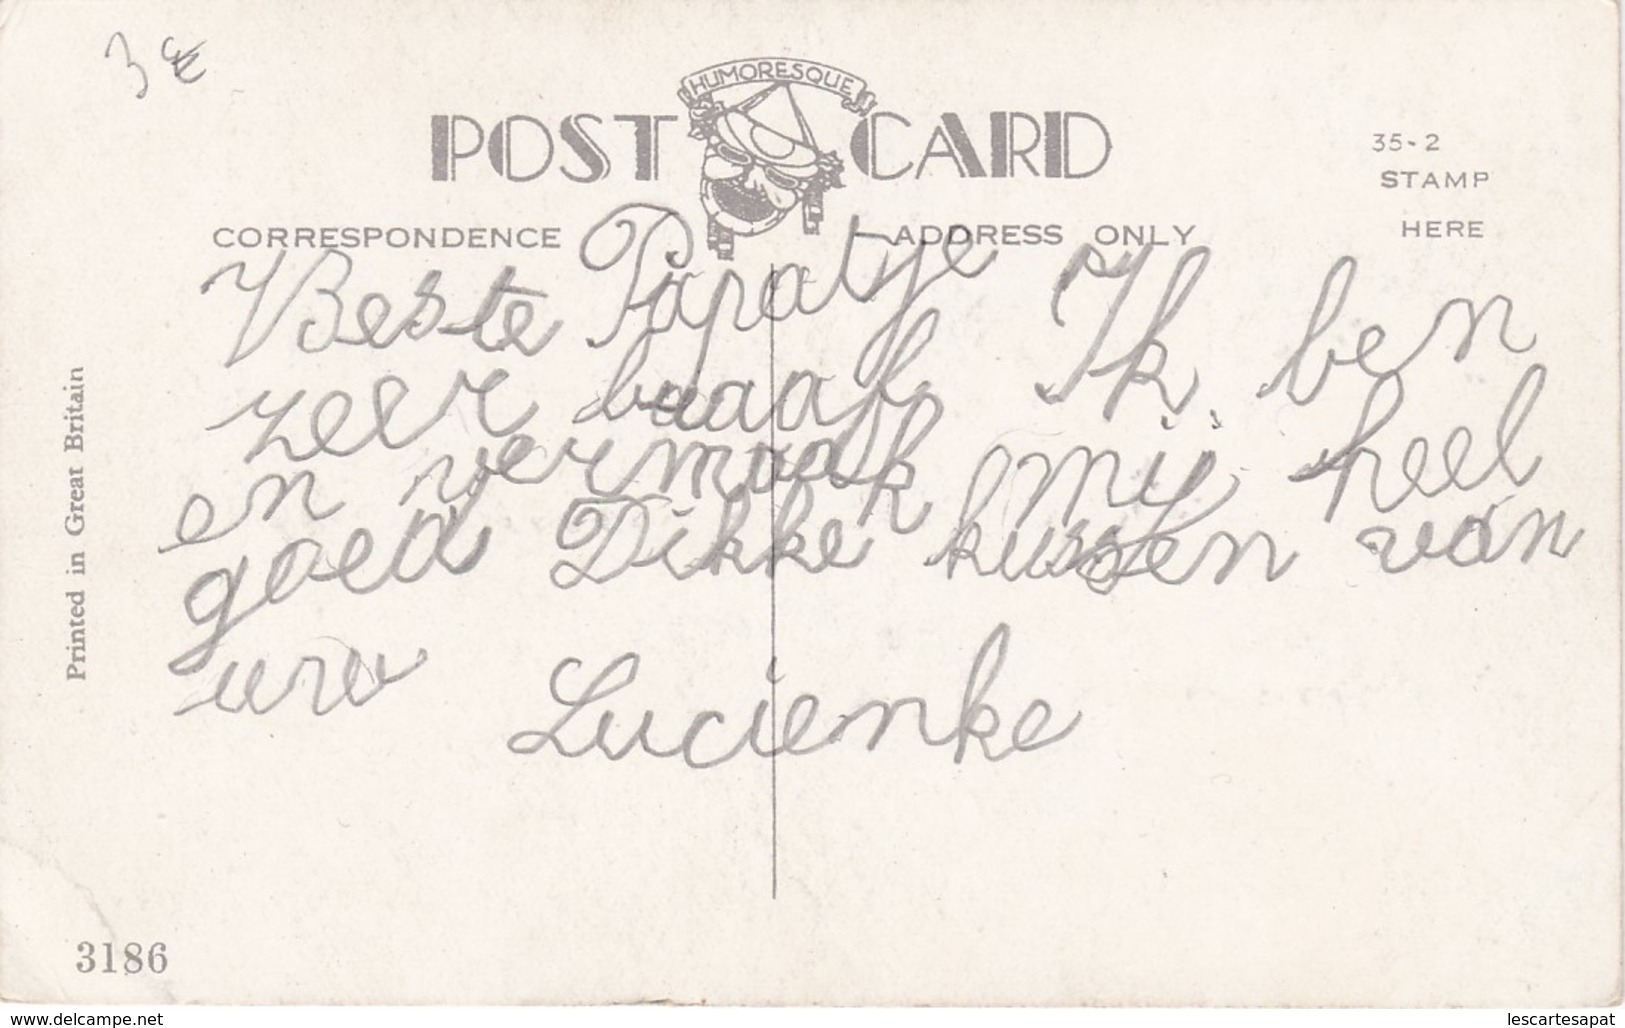 3 €
HUMORESQUE
POST CARD
35-2
STAMP
HERE
CORRESPONDENCE
ADDRESS ONLY
Beste Papatje Ik ben
zeer braaf
en vermaak mij heel
goed Dikke kussen van
uw Lucienke
Printed in Great Britain
3186
www.delcampe.net
lescartesapat